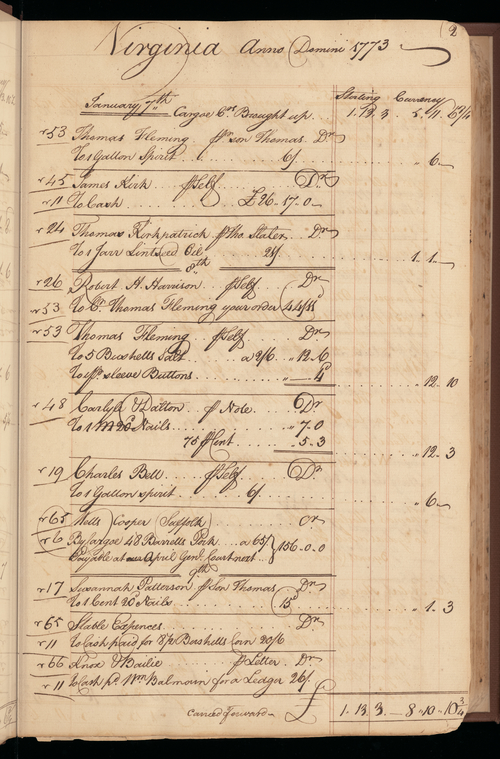 2
Virginia Anno Domini 1773
Sterling Currency
January 7th Cargoe Brought up 1. 13. 3
53 Thomas Fleming son Thomas Dr
To 1 Gallon Spirit 6/ 6
45 James Kirk Self Dr
11 To Cash £ 26 - 17 - 0
24 Thomas Kirkpatrick Dr
To 1 Jarr Lintseed Oil 21/ 1. 1
8th
26 Robert H. Harrison Self Dr
53 To Cr. Thomas Fleming your order
53 Thomas Fleming Self Dr
To 5 Bushells Salt a 2/6 12. 6
To sleeve Buttons 4
12. 10
48 Carlyle & Dalton Note Dr
To 1 M Nails 7 . 0
75 Cent 5 . 3
12. 3
19 Charles Bell Self Dr
To 1 Gallon spirit 6/ 6
65 Cooper (Suffolk) Cr
6 By Cargoe 48 Barrells Pork a 65/ 156 . 0 . 0
Payable at our April Genl. Court next
9th
17 Susannah Patterson Son Thomas Dr
To 1 Cent 20d Nails 15d 1. 3
65 Stable Expences Dr
11 To Cash paid for 8 1/2 Bushells Corn 20/6
66 Knox & Bailie Letter Dr
11 To Cash pd. Wm Balmain for a Ledger 26/
Carried Forward £ 1. 13. 3 8 . 10 . 10 3/4